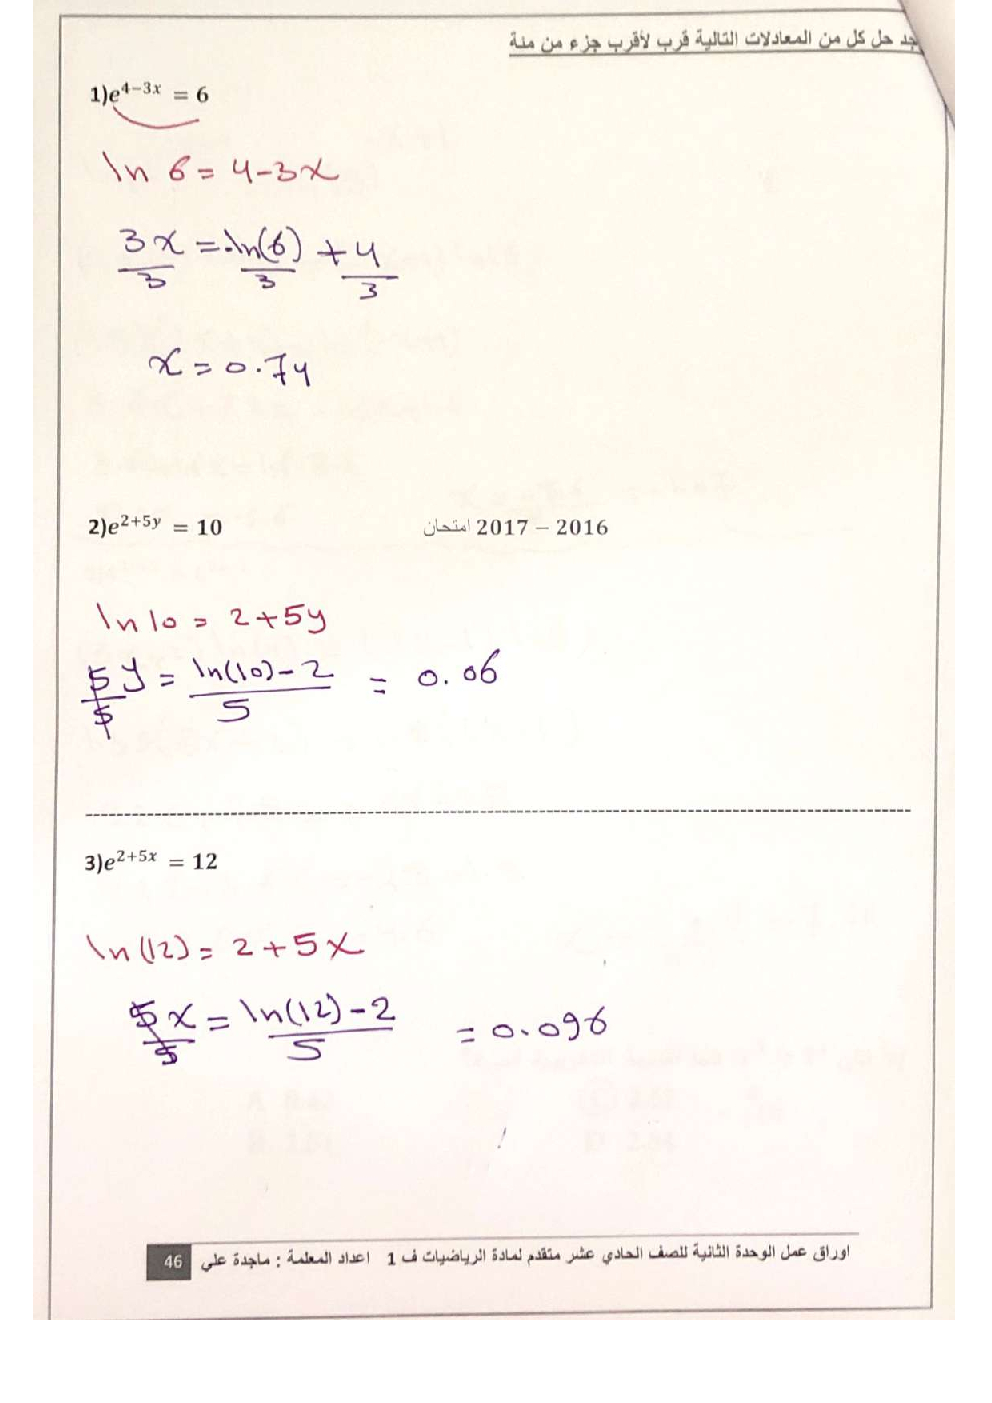 جد حل كل من المعادلات التالية قرب لأقرب جزء من مئة
1)e^{4−3x} = 6
ln 6 = 4-3x
3x/3 = -ln(6)/3 + 4/3
x = 0.74
2)e^{2+5y} = 10 امتحان 2017 – 2016
ln 10 = 2+5y
5y/5 = ln(10)-2/5 = 0.06
3)e^{2+5x} = 12
ln(12) = 2+5x
5x/5 = ln(12)-2/5 = 0.096
اوراق عمل الوحدة الثانية للصف الحادي عشر متقدم لمادة الرياضيات ف 1 اعداد المعلمة : ماجدة علي 46